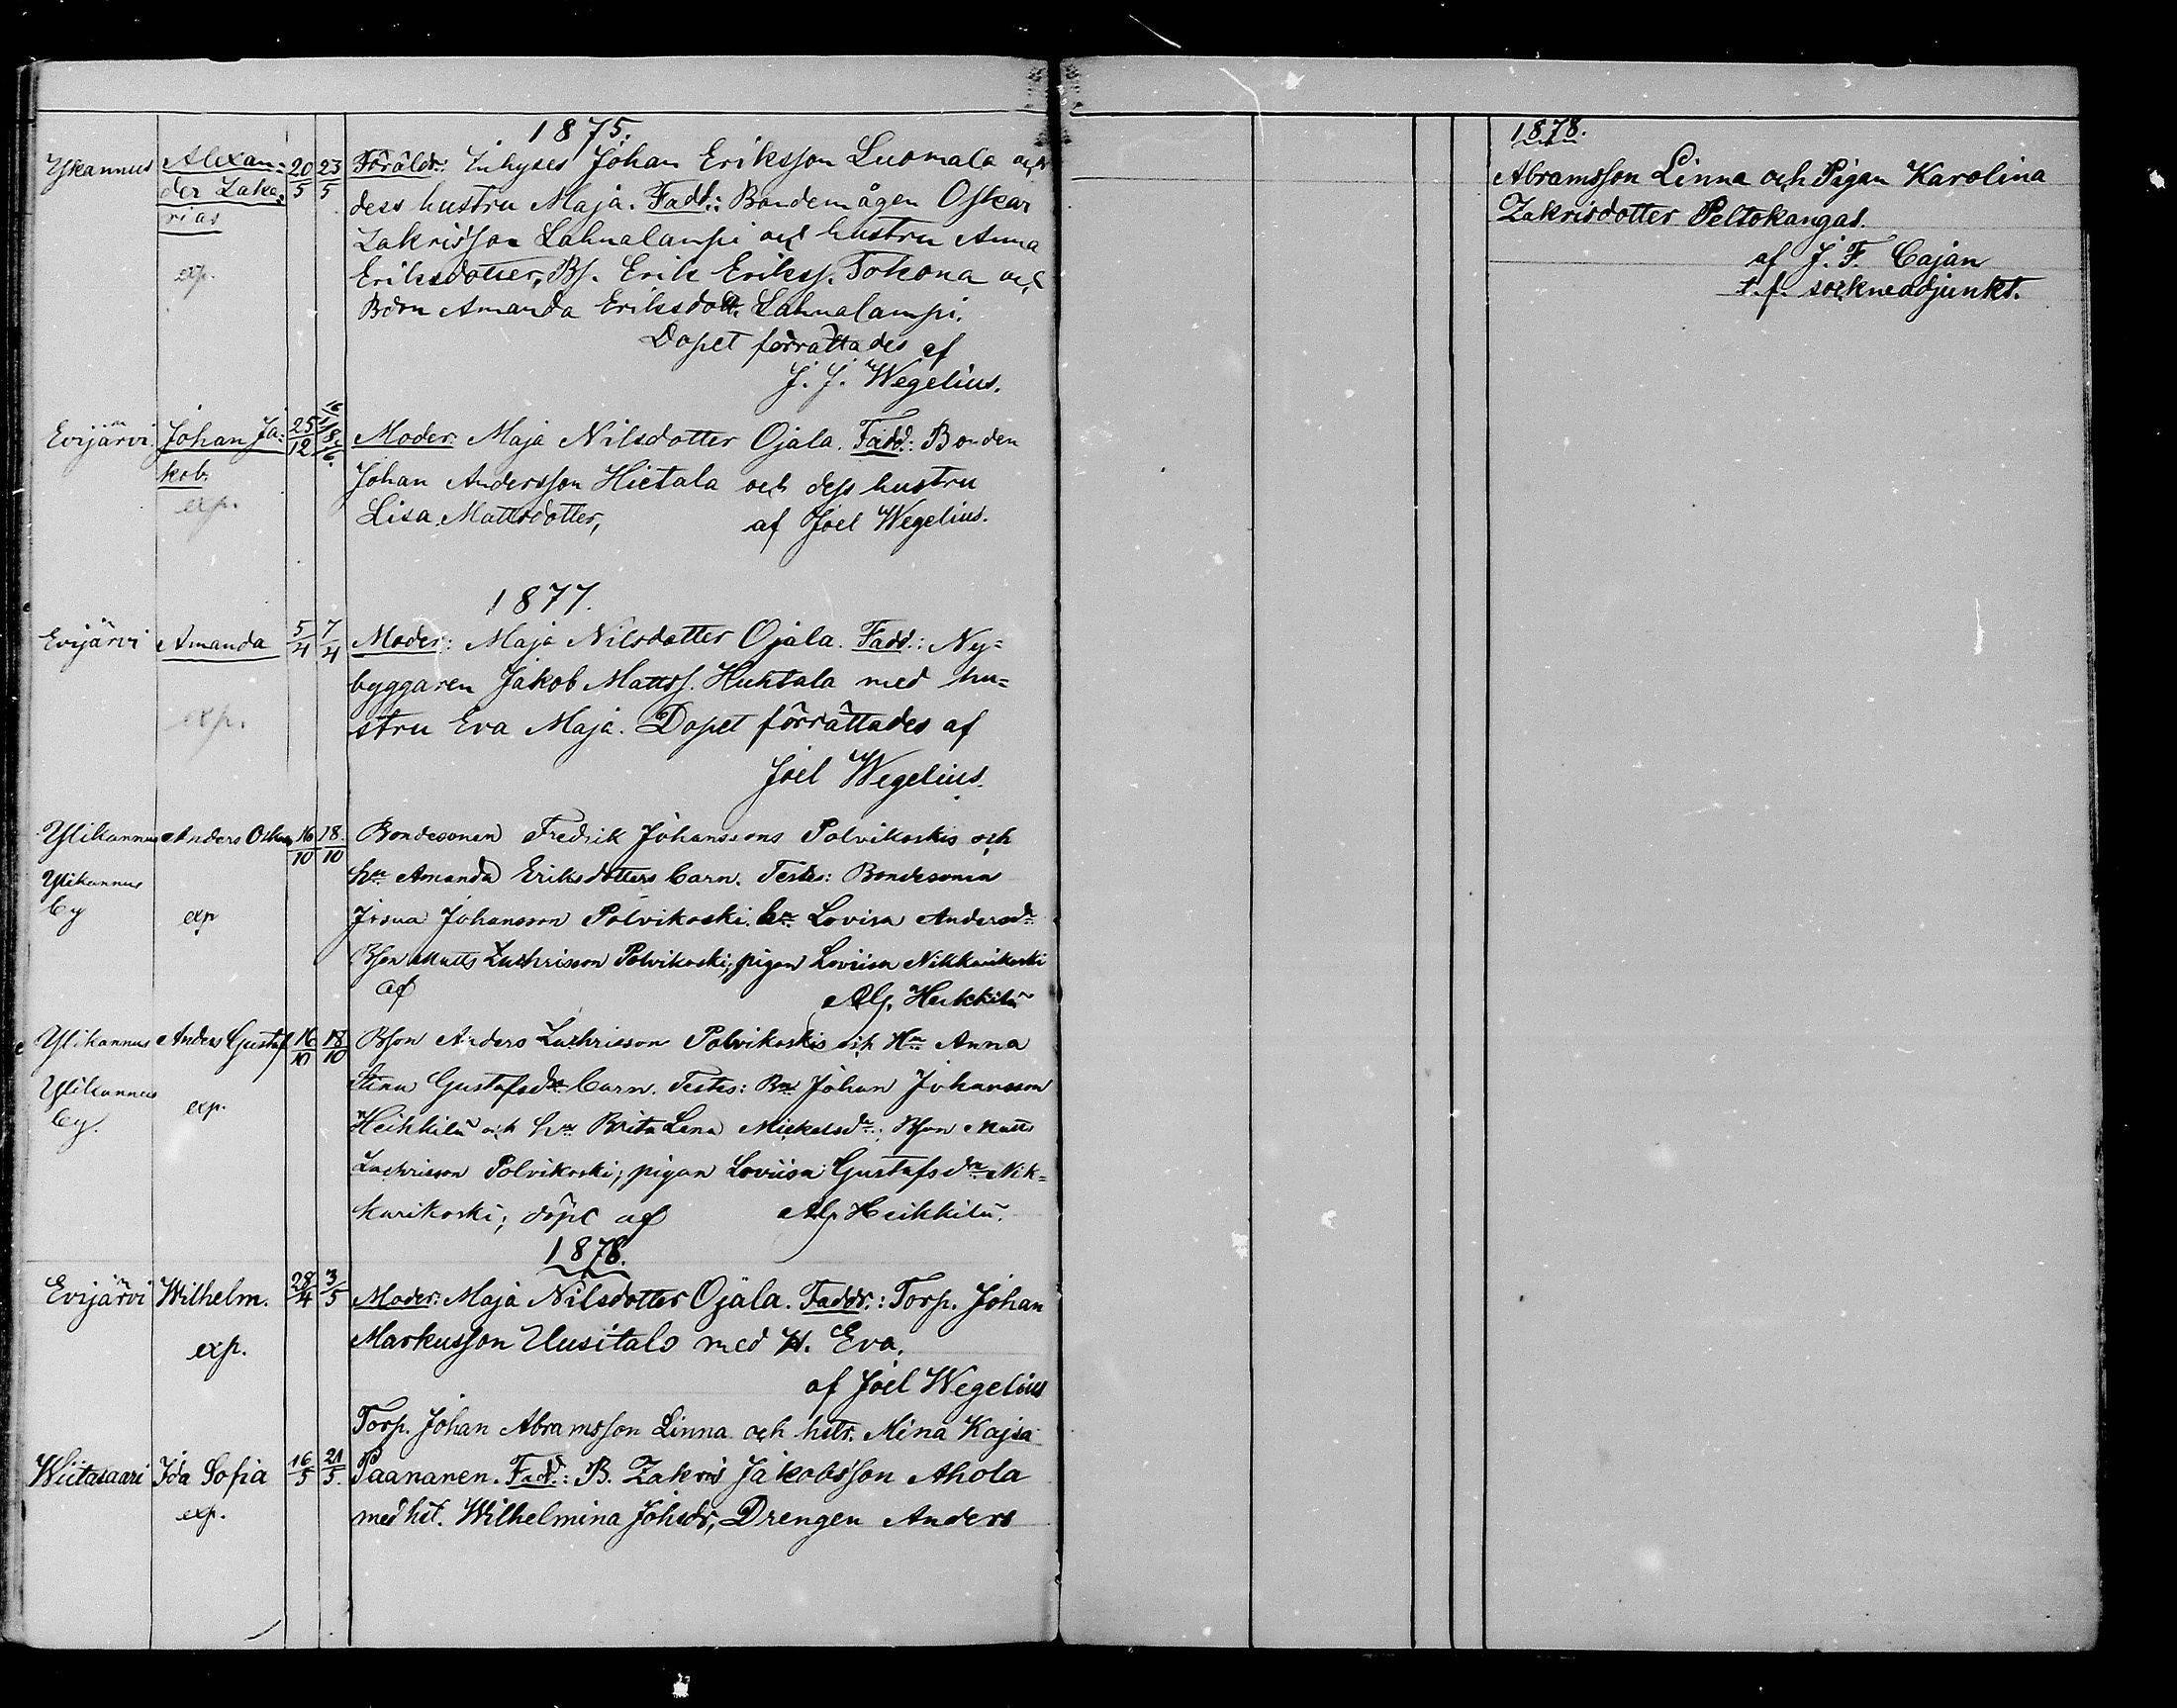 1875.
Ykannus Alexan= 20/5 23/5 Föräldr: Inhyses Johan Eriksson Luomala och
der Zaka= dess hustru Maja. Fadd.: Bondemågen Oskar
rias Zakrisson Lahnalampi och hustru Anna
exp. Eriksdotter, Bs. Erik Erikss. Tokona och
Bdon Amanda Eriksdott. Lahnalampi.
Dopet förrättades af
J. J. Wegelius.
Evijärvi Johan Ja= 25/12 Moder: Maja Nilsdotter Ojala. Fadd: Bonden
kob. Johan Andersson Hietala och dess hustru
exp. Lisa Mattsdotter, af Joel Wegelius.
1877.
Evijärvi Amanda 5/4 7/4 Moder: Maja Nilsdotter Ojala. Fadd.: Ny=
byggaren Jakob Matts. Huhtala med hu=
exp. stru Eva Maja. Dopet förrättades af
Joel Wegelius.
Ylikannus Anders Oskar 16/10 18/10 Bondesonen Fredrik Johanssons Polvikoskis och
Ylikannus hn Amanda Eriksdotters barn. Testes: Bondesonen
by exp Josua Johansson Polvikoski. hn Lovisa Andersdr
Bson Matts Zachrisson Polvikoski; pigan Loviisa Nikkarikoski
af Alf. Heikkilä
Ylikannus Anders Gustaf 16/10 18/10 Bson Anders Zachrisson Polvikoskis och Hn Anna
Ylikannus exp. Stina Gustafsdrs barn. Testes: Bn Johan Johansson
by. Heikkilä och hn Brita Lena Mickelsdr; Bson Matts
Zachrisson Polvikoski; pigan Loviisa Gustafsdr Nik=
karikoski; döpt af Alf Heikkilä.
1878.
Evijärvi Wilhelm. 28/4 3/5 Moder: Maja Nilsdotter Ojala. Faddr.: Torp. Johan
exp. Markusson Uusitalo med H. Eva.
af Joel Wegelius
Torp. Johan Abramsson Linna och hstr. Mina Kajsa
Wiitasaari Ida Sofia 16/5 21/5. Paananen. Fadd: B. Zakris Jakobsson Ahola
exp. med hst. Wilhelmina Johsdr, Drengen Anders
1878.
Abramsson Linna och Pigan Karolina
Zakrisdotter Peltokangas.
af J. F. Cajan
t. f. sockneadjunkt.